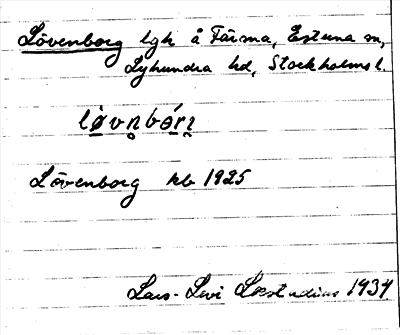 Lövenborg lgh å Färsna, Estuna sn,
Lyhundra hd, Stockholms l.
Lövenborg kb 1925
Lars-Levi Læstadius 1934